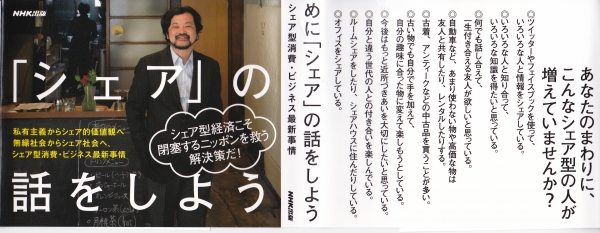 NHK出版
「シェア」の
話をしよう
私有主義からシェア的価値観へ
無縁社会からシェア社会へ、
シェア型消費・ビジネス最新事情
シェア型経済こそ
閉塞するニッポンを救う
解決策だ!
めに「シェア」の話をしよう
シェア型消費・ビジネス最新事情
NHK出版
あなたのまわりに、
こんなシェア型の人が
増えていませんか?
◎ツイッターやフェイスブックを使って、
いろいろな人と情報をシェアしている。
◎いろいろな人と知り合って、
いろいろな知識を得たいと思っている。
◎何でも話し合えて、
一生付き合える友人が欲しいと思っている。
◎自動車など、あまり使わない物や高価な物は
友人と共有したり、レンタルしたりする。
◎古着、アンティークなどの中古品を買うことが多い。
◎古い物でも自分で手を加えて、
自分の趣味に合った物に変えて楽しもうとしている。
◎今後はもっと近所づきあいを大切にしたいと思っている。
◎自分と違う世代の人との付き合いを楽しんでいる。
◎ルームシェアをしたり、シェアハウスに住んだりしている。
◎オフィスをシェアしている。